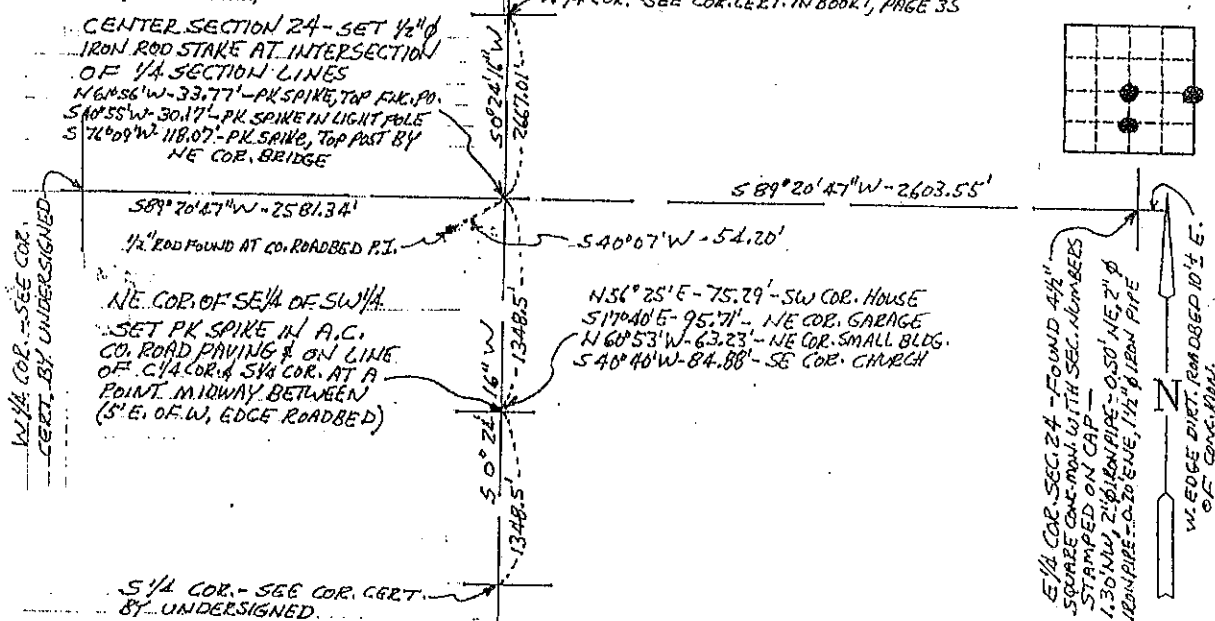 N 1/4 COR. - SEE COR. CERT. IN BOOK 1, PAGE 35
CENTER SECTION 24 - SET 1/2" φ
IRON ROD STAKE AT INTERSECTION
OF 1/4 SECTION LINES
N 61°56' W - 33.77' - PK SPIKE, TOP FNC. PO.
S 40°55' W - 30.17' - PK SPIKE IN LIGHT POLE
S 76°09' W - 118.07' - PK SPIKE, TOP POST BY
NE COR. BRIDGE
S 0° 24' 16" W
2667.01'
S 89° 20' 47" W - 2581.34'
S 89° 20' 47" W - 2603.55'
1/2" ROD FOUND AT CO. ROADBED P.I.
S 40°07' W - 54.20'
W 1/4 COR. - SEE COR.
CERT. BY UNDERSIGNED
NE COR. OF SE 1/4 OF SW 1/4
SET PK SPIKE IN A.C.
CO. ROAD PAVING & ON LINE
OF C 1/4 COR. & S 1/4 COR. AT A
POINT MIDWAY BETWEEN
(5' E. OF W. EDGE ROADBED)
N 36° 25' E - 75.29' - SW COR. HOUSE
S 17°40' E - 95.71' - NE COR. GARAGE
N 60°53' W - 63.23' - NE COR. SMALL BLDG.
S 40°40' W - 84.88' - SE COR. CHURCH
S 0° 24' 16" W
1348.5'
1348.5'
S 1/4 COR. - SEE COR. CERT.
BY UNDERSIGNED
E 1/4 COR. SEC. 24 - FOUND 4 1/2"
SQUARE CONC. MON. WITH SEC. NUMBERS
STAMPED ON CAP —
1.30' NW, 2" φ IRON PIPE - 0.50' NE, 2" φ
IRON PIPE - 0.20' ENE, 1 1/2" φ IRON PIPE
N
W. EDGE DIRT ROADBED 10'± E.
OF CONC. MON.